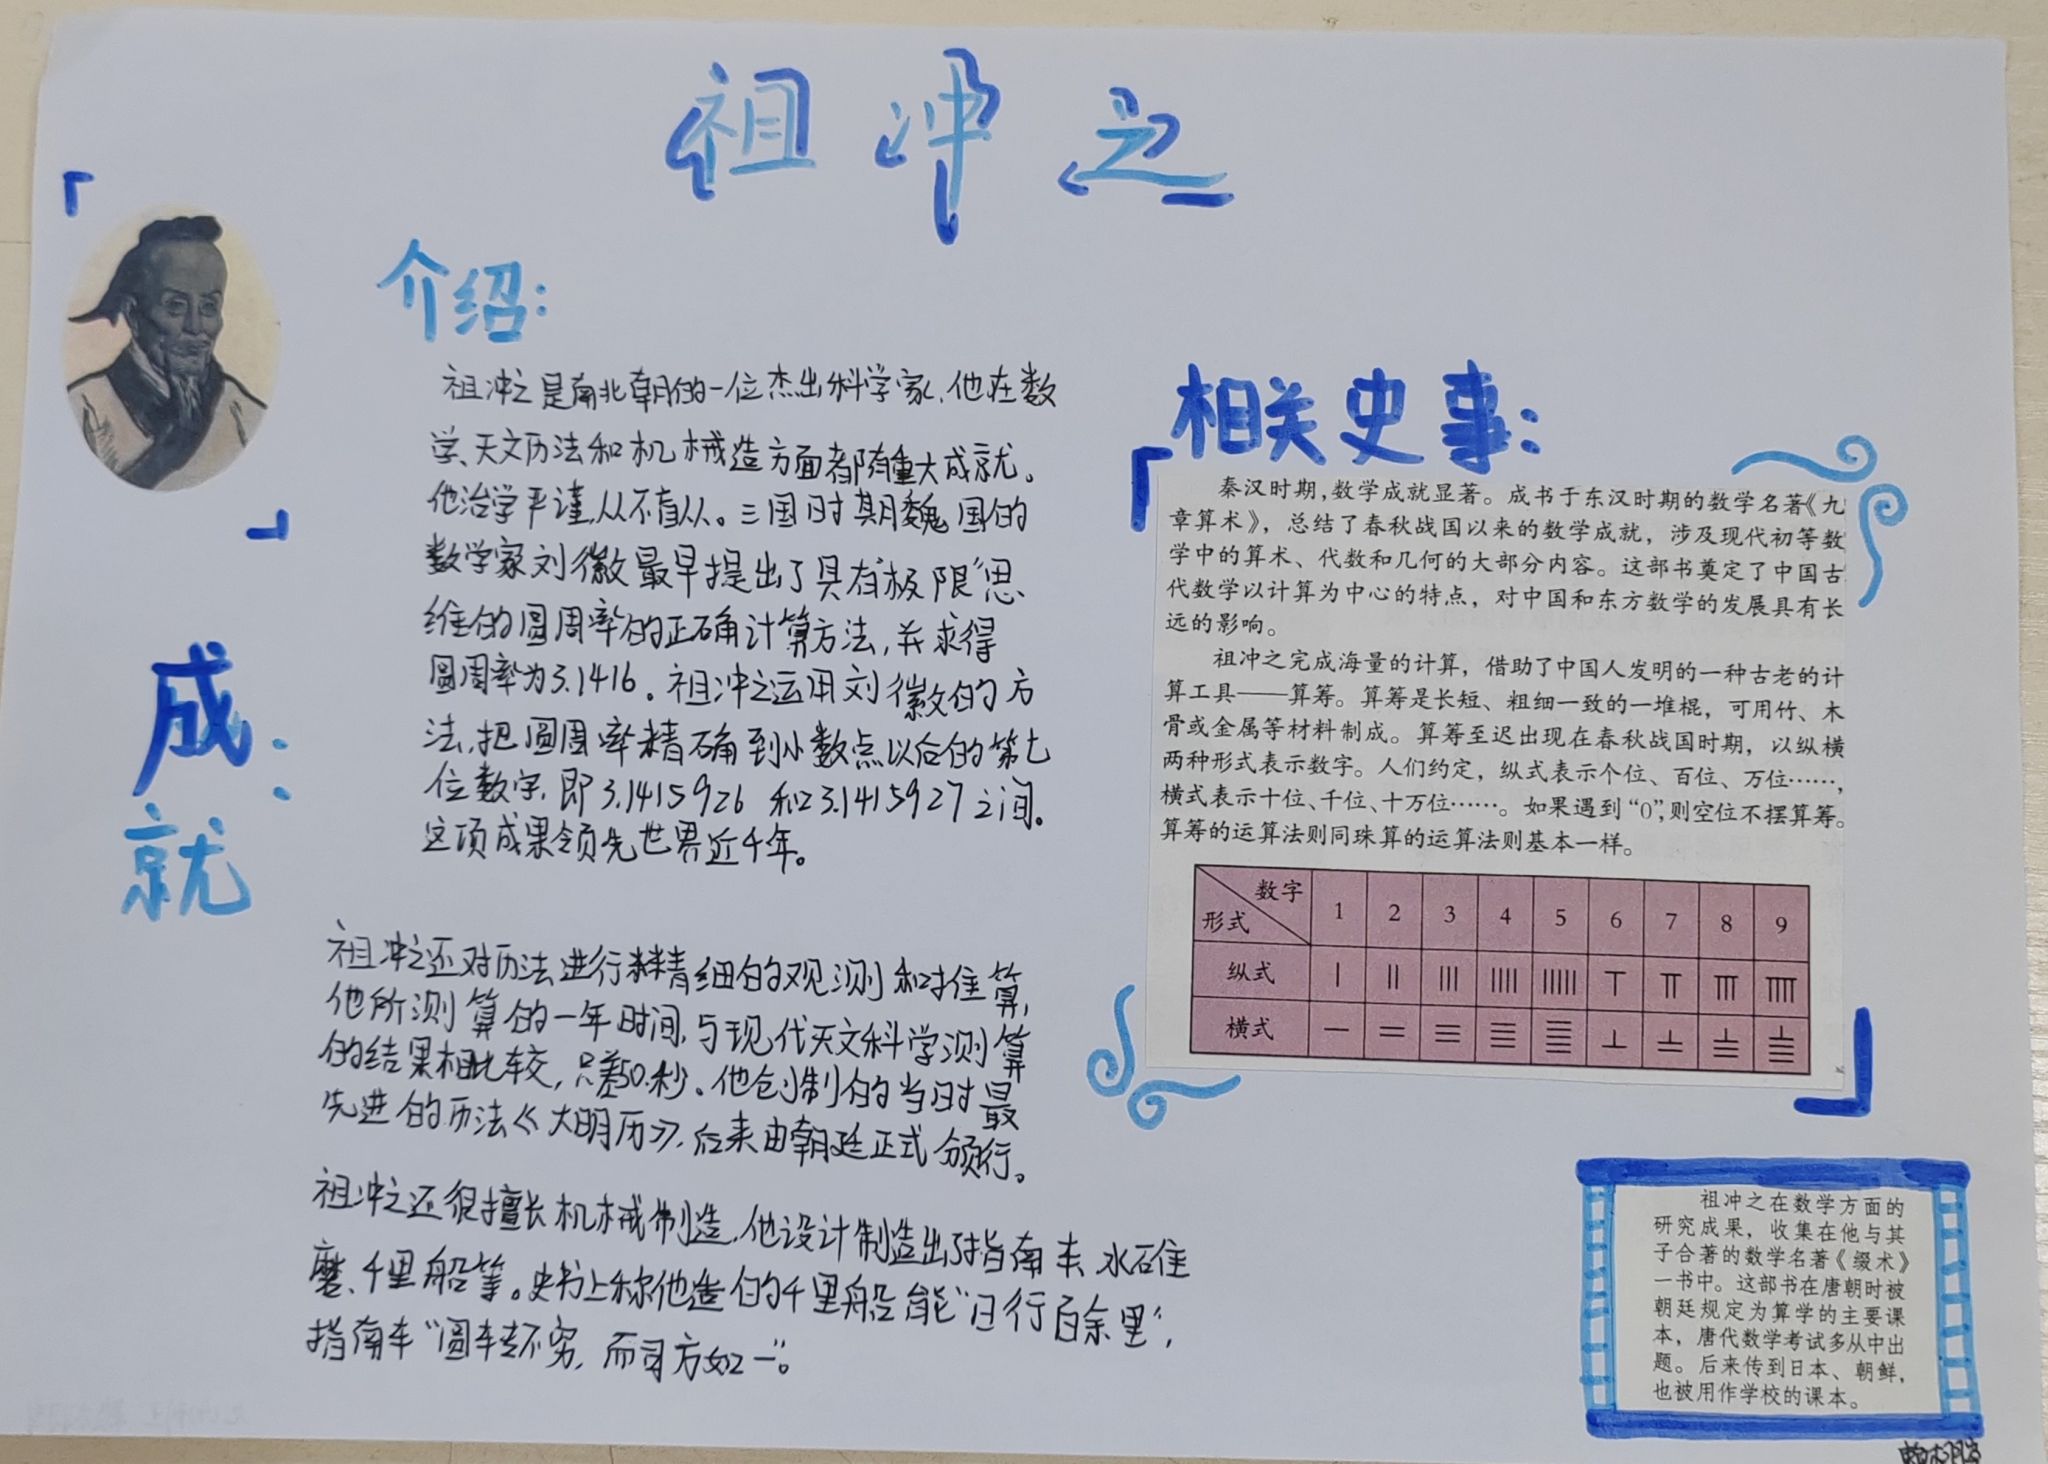 祖冲之
介绍:
祖冲之是南北朝的一位杰出科学家,他在数
学、天文历法和机械造方面都有重大成就。
他治学严谨,从不盲从。三国时期魏国的
数学家刘徽最早提出了具有“极限”思
维的圆周率的正确计算方法,并求得
圆周率为3.1416。祖冲之运用刘徽的方
法,把圆周率精确到小数点以后的第七
位数字,即3.1415926和3.1415927之间。
这项成果领先世界近千年。
成就:
祖冲之还对历法进行精细的观测和推算,
他所测算的一年时间,与现代天文科学测算
的结果相比较,只差50秒。他创制的当时最
先进的历法《大明历》,后来由朝廷正式颁行。
祖冲之还很擅长机械制造,他设计制造出了指南车、水碓
磨、千里船等。史书上称他造的千里船能“日行百余里”,
指南车“圆转不穷,而司方如一”。
相关史事:
秦汉时期,数学成就显著。成书于东汉时期的数学名著《九
章算术》,总结了春秋战国以来的数学成就,涉及现代初等数
学中的算术、代数和几何的大部分内容。这部书奠定了中国古
代数学以计算为中心的特点,对中国和东方数学的发展具有长
远的影响。
祖冲之完成海量的计算,借助了中国人发明的一种古老的计
算工具——算筹。算筹是长短、粗细一致的一堆棍,可用竹、木
骨或金属等材料制成。算筹至迟出现在春秋战国时期,以纵横
两种形式表示数字。人们约定,纵式表示个位、百位、万位……,
横式表示十位、千位、十万位……。如果遇到“0”,则空位不摆算筹。
算筹的运算法则同珠算的运算法则基本一样。
数字 形式 1 2 3 4 5 6 7 8 9
纵式
横式
祖冲之在数学方面的
研究成果,收集在他与其
子合著的数学名著《缀术》
一书中。这部书在唐朝时被
朝廷规定为算学的主要课
本,唐代数学考试多从中出
题。后来传到日本、朝鲜,
也被用作学校的课本。